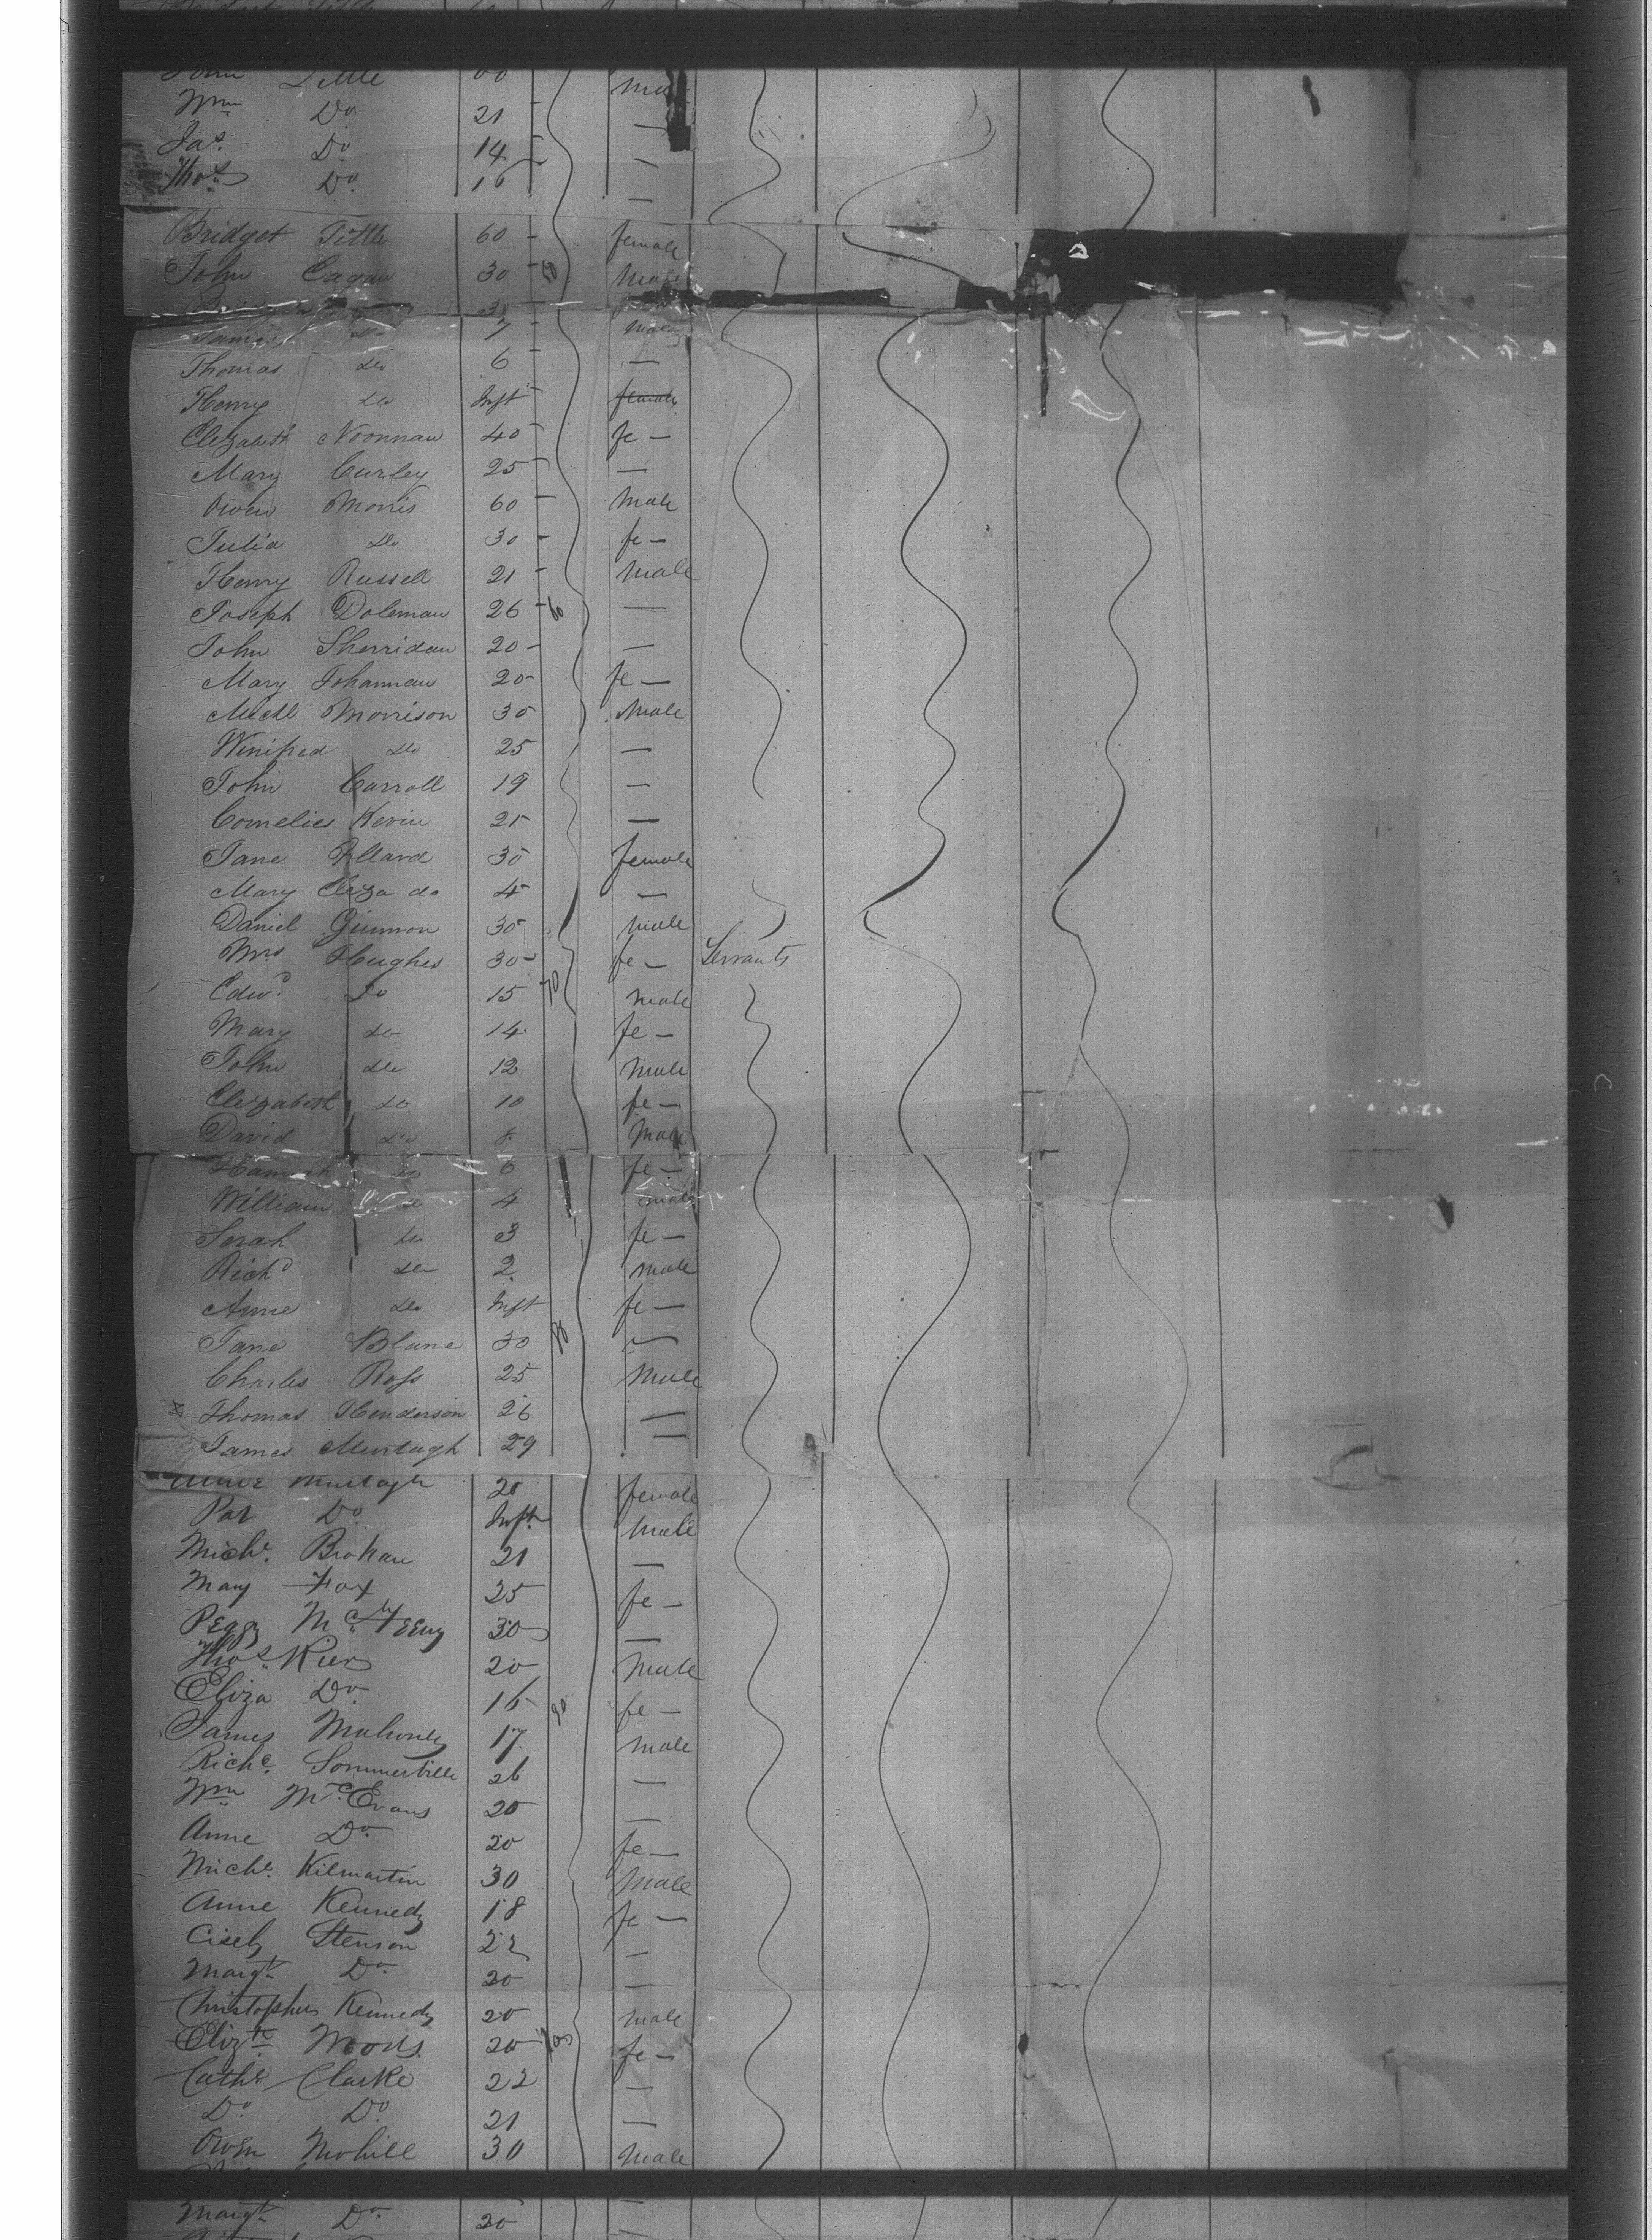 Little male
Wm Do 21 —
Jas. Do 14 —
Thos Do 16 —
Bridget Tittle 60 female
John Cagan 30 50 Male
30
James do 7 male
Thomas do 6 —
Henry do Inft female
Elizabeth Noonnan 40 fe —
Mary Curley 25 —
Owen Morris 60 Male
Julia do 30 fe —
Henry Russell 21 Male
Joseph Doleman 26 60 —
John Sherridan 20 —
Mary Johannan 20 fe —
Michl Morrison 30 Male
Winifred do 25 —
John Carroll 19 —
Cornelies Kevin 21 —
Jane 30 female
Mary Eliza do 4 —
Daniel Ginnon 30 male
Mrs Hughes 30 fe — Servants
Edwd do 15 70 male
Mary do 14 fe —
John do 12 Male
Elizabeth do 10 fe —
David do 8 Male
Hannah do 6 fe —
William do 4 male
Sarah do 3 fe —
Richd do 2 male
Anne do Inft fe —
Jane Blane 30 80 —
Charles Ross 25 Male
x Thomas Henderson 26 —
James Murtagh 29 —
Murtagh 20 female
Pat Do Inft Male
Michl. Brohan 21 —
May Fox 25 fe —
Peggy 30 —
Thos. Kier 20 Male
Eliza Do 16 90 fe —
James Mahoney 17 male
Richd. Sommerville 26 —
Wm McEvans 20 —
Anne Do 20 fe —
Michl. Kilmartin 30 Male
Anne Kennedy 18 fe —
Cisely Stenson 22 —
Margt Do 20 —
Christopher Kennedy 20 male
Elizth Woods 20 100 fe —
Cathe Clarke 22 —
Do Do 21 —
Owen Mohill 30 Male
Margt Do 20 —